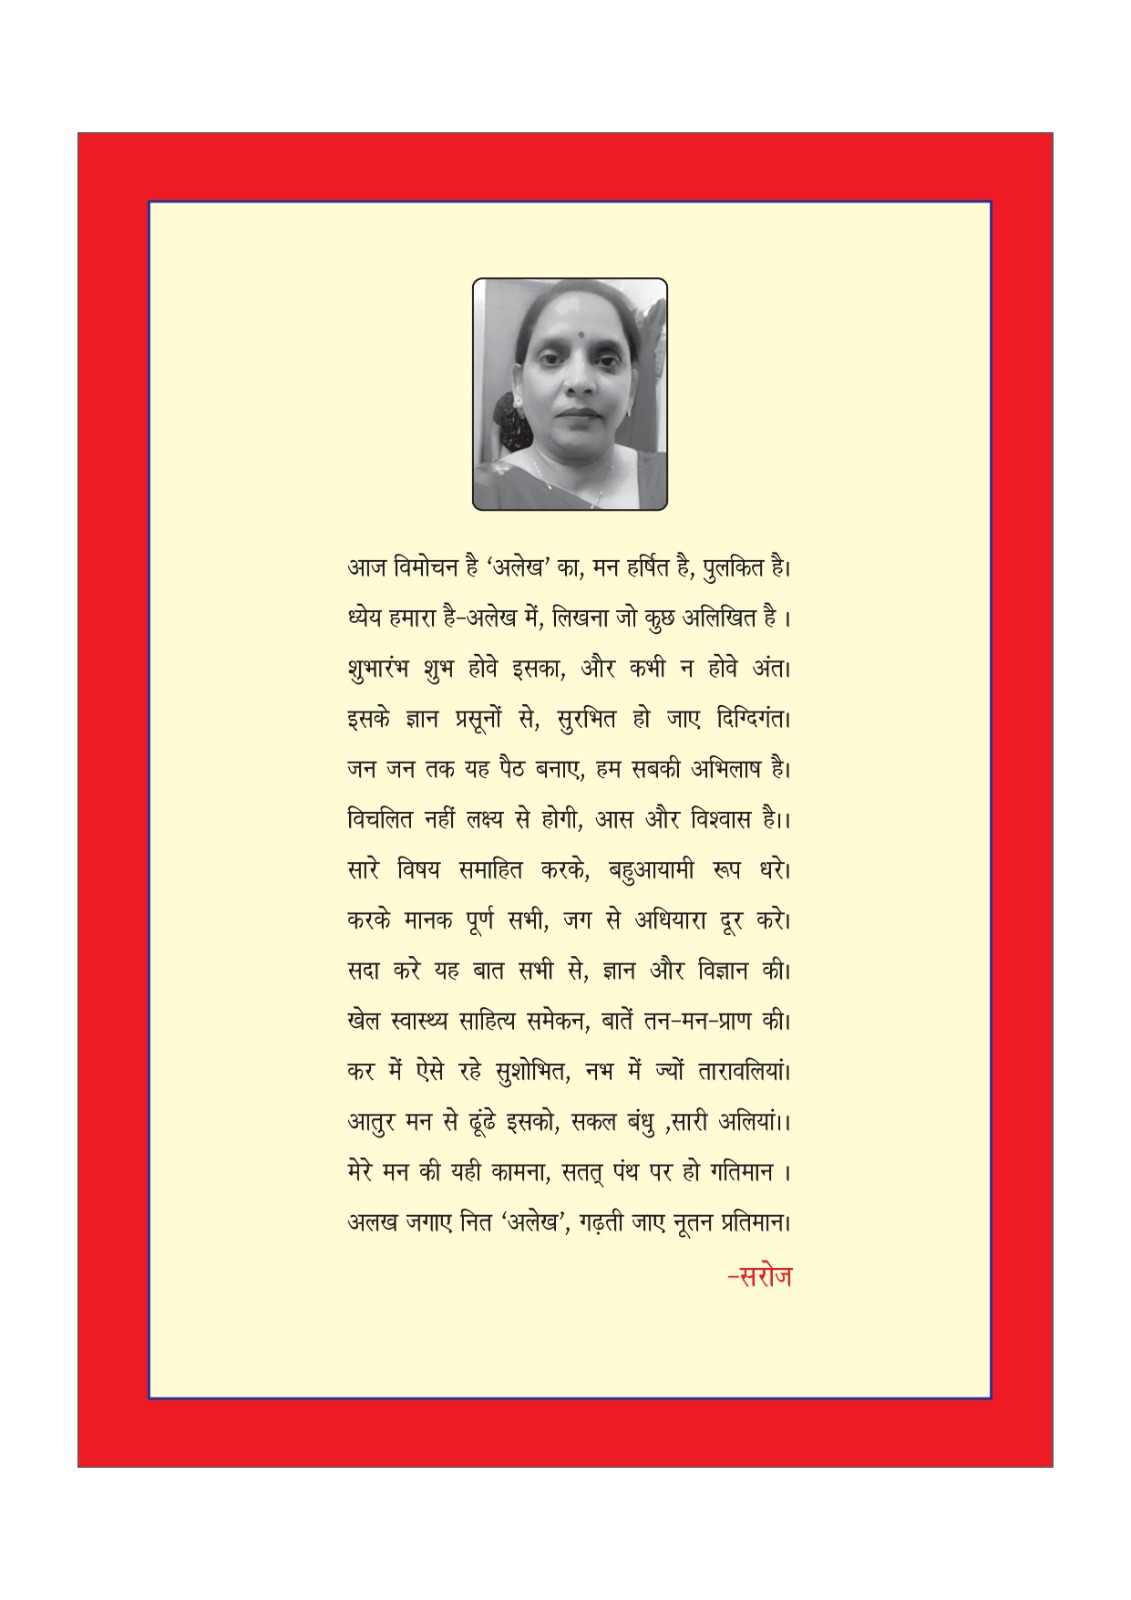 आज विमोचन है ‘अलेख’ का, मन हर्षित है, पुलकित है।
ध्येय हमारा है-अलेख में, लिखना जो कुछ अलिखित है ।
शुभारंभ शुभ होवे इसका, और कभी न होवे अंत।
इसके ज्ञान प्रसूनों से, सुरभित हो जाए दिग्दिगंत।
जन जन तक यह पैठ बनाए, हम सबकी अभिलाष है।
विचलित नहीं लक्ष्य से होगी, आस और विश्वास है।।
सारे विषय समाहित करके, बहुआयामी रूप धरे।
करके मानक पूर्ण सभी, जग से अधियारा दूर करे।
सदा करे यह बात सभी से, ज्ञान और विज्ञान की।
खेल स्वास्थ्य साहित्य समेकन, बातें तन-मन-प्राण की।
कर में ऐसे रहे सुशोभित, नभ में ज्यों तारावलियां।
आतुर मन से ढूंढे इसको, सकल बंधु ,सारी अलियां।।
मेरे मन की यही कामना, सतत् पंथ पर हो गतिमान ।
अलख जगाए नित ‘अलेख’, गढ़ती जाए नूतन प्रतिमान।
-सरोज